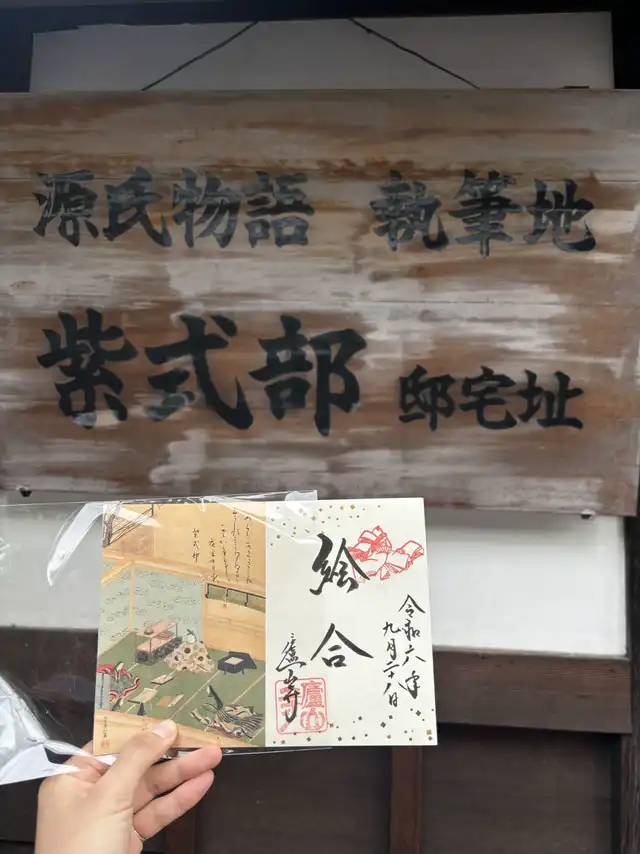 源氏物語 執筆地
紫式部 邸宅址
紫式部
絵合
令和六年
九月二十八日
廬山寺